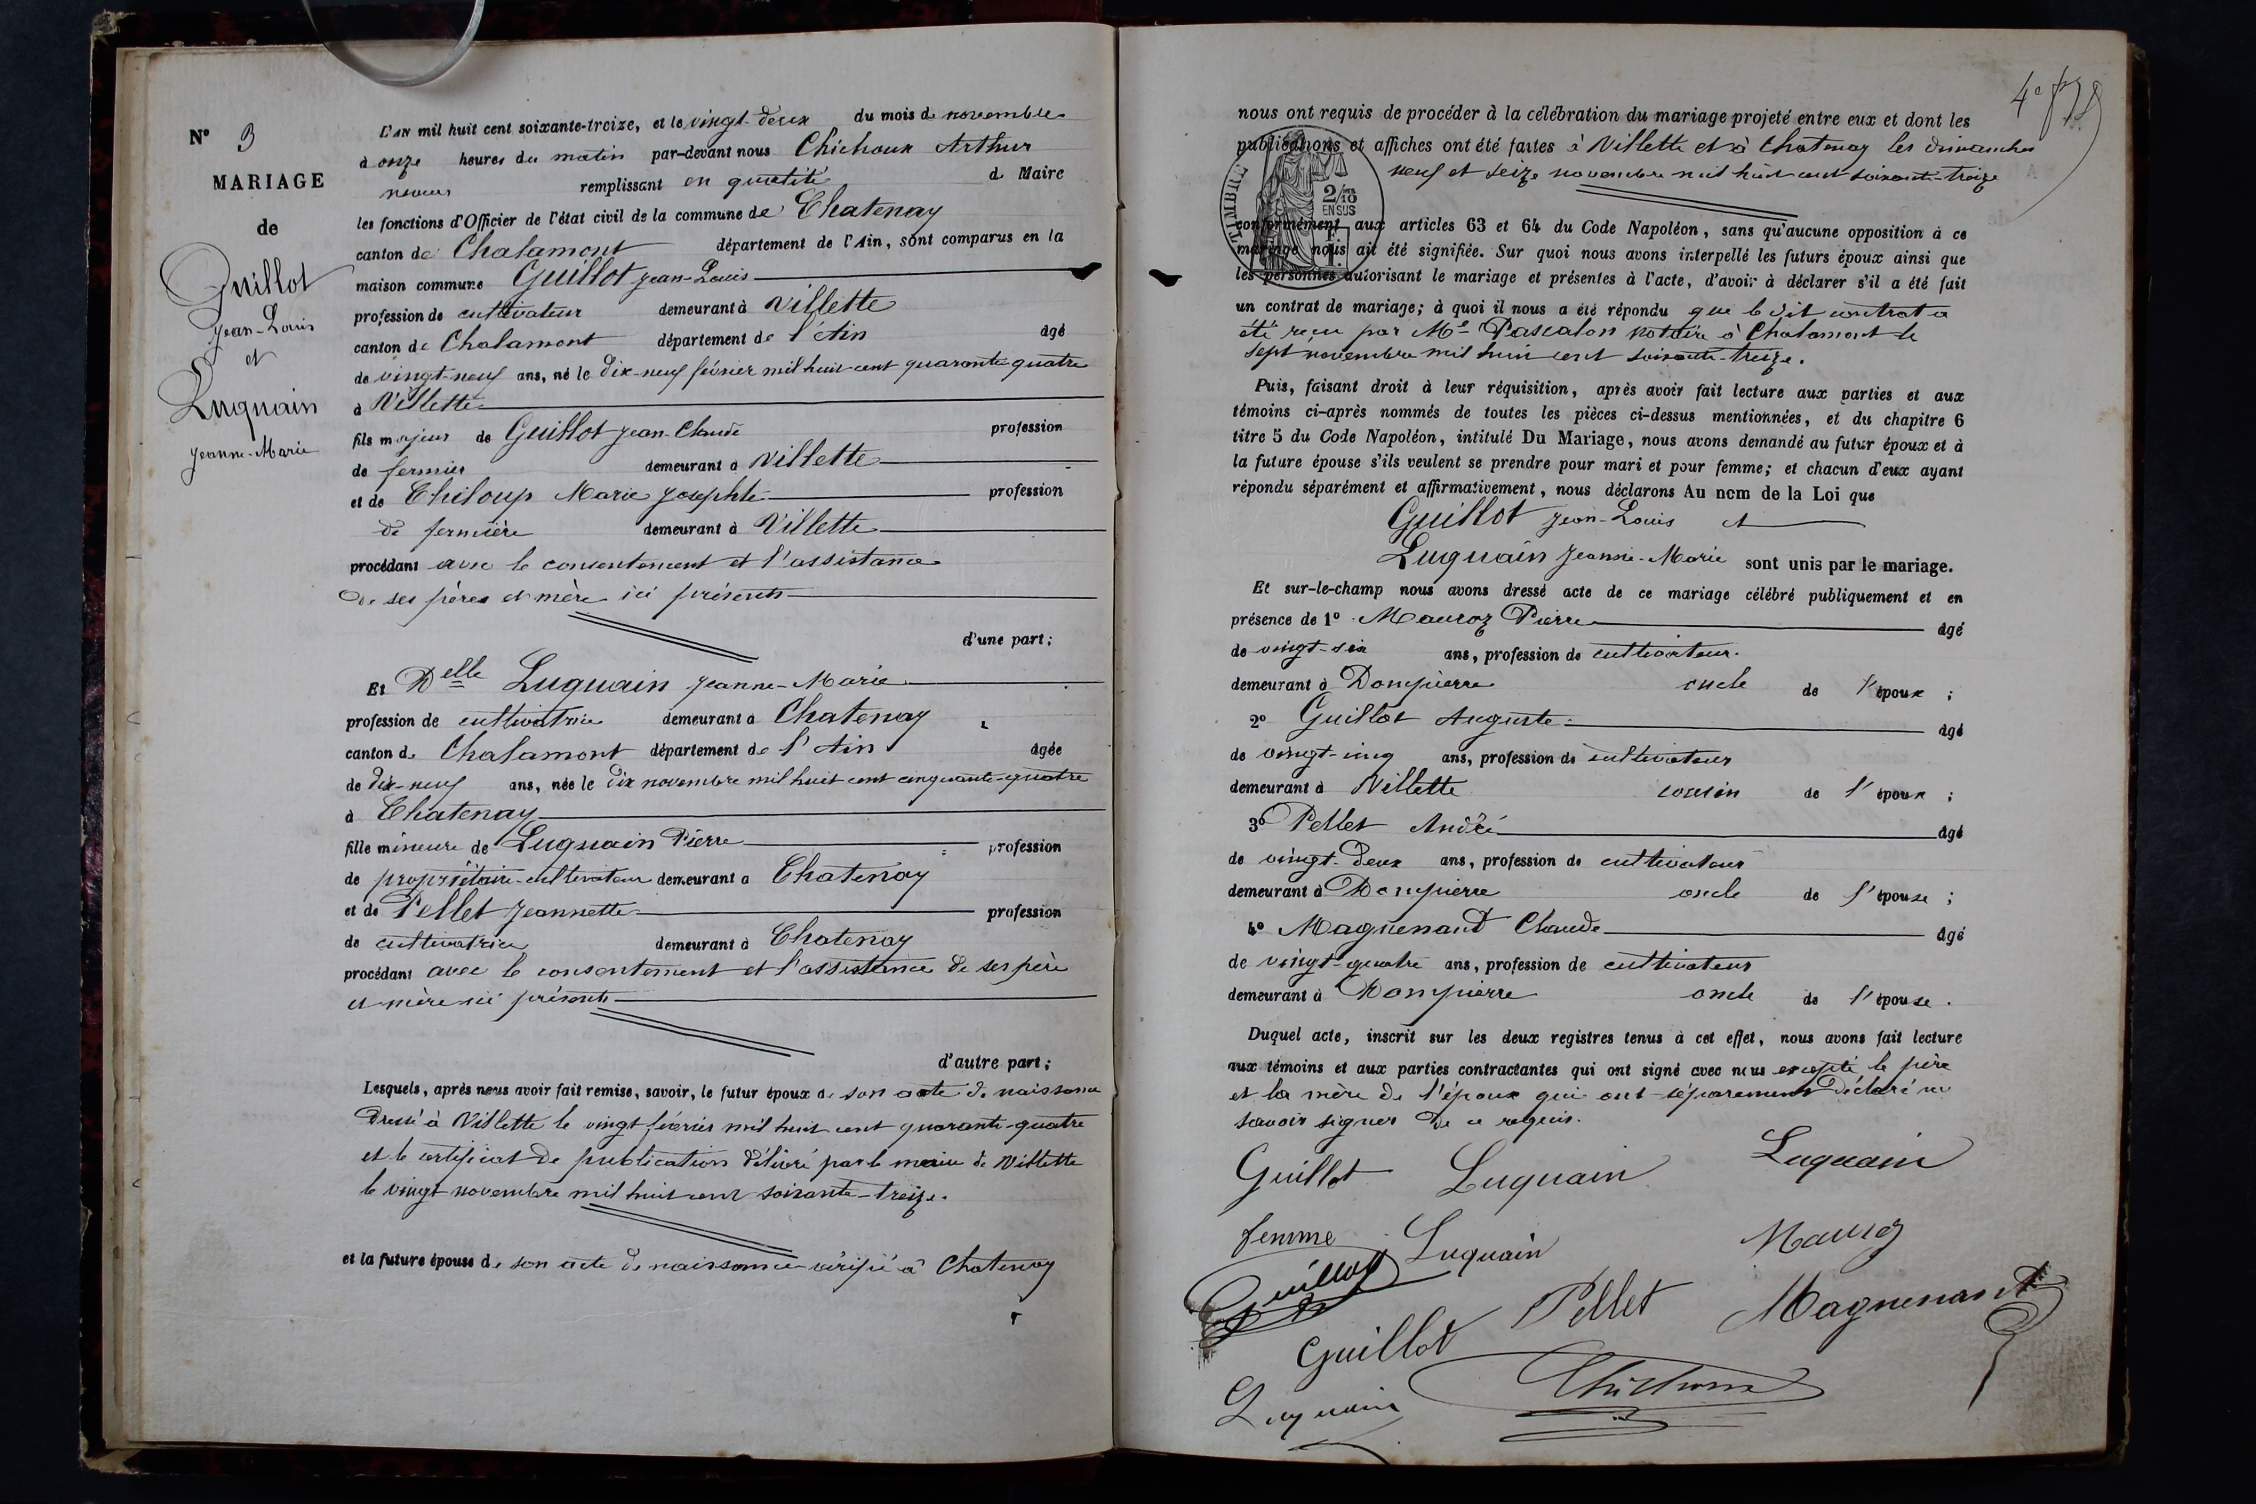 N° 3
MARIAGE
de
Guillot
Jean-Louis
et
Luquain
Jeanne-Marie
L'AN mil huit cent soixante-treize, et le vingt-deux du mois de novembre
à onze heures du matin par-devant nous Chichoux Arthur
remplissant en qualité de Maire
les fonctions d'Officier de l'état civil de la commune de Chatenay
canton de Chalamont département de l'Ain, sont comparus en la
maison commune Guillot Jean-Louis
profession de cultivateur demeurant à Villette
canton de Chalamont département de l'Ain âgé
de vingt-neuf ans, né le dix-neuf février mil huit cent quarante-quatre
à Villette
fils majeur de Guillot Jean-Claude profession
de fermier demeurant à Villette
et de Chiloup Marie Josephte profession
de fermière demeurant à Villette
procédant avec le consentement et l'assistance
de ses pères et mère ici présents
d'une part;
Et Delle Luquain Jeanne-Marie
profession de cultivatrice demeurant à Chatenay
canton de Chalamont département de l'Ain âgée
de dix-neuf ans, née le dix novembre mil huit cent cinquante-quatre
à Chatenay
fille mineure de Luquain Pierre profession
de propriétaire-cultivateur demeurant à Chatenay
et de Pellet Jeannette profession
de cultivatrice demeurant à Chatenay
procédant avec le consentement et l'assistance de ses père
et mère ici présents
d'autre part;
Lesquels, après nous avoir fait remise, savoir, le futur époux de son acte de naissance
dressé à Villette le vingt février mil huit cent quarante-quatre
et le certificat de publication délivré par le maire de Villette
le vingt novembre mil huit cent soixante-treize.
et la future épouse de son acte de naissance vérifié à Chatenay
nous ont requis de procéder à la célébration du mariage projeté entre eux et dont les
publications et affiches ont été faites à Villette et à Chatenay les dimanches
neuf et seize novembre mil huit cent soixante-treize
TIMBRE
2/10
EN SUS
conformément aux articles 63 et 64 du Code Napoléon, sans qu'aucune opposition à ce
mariage nous ait été signifiée. Sur quoi nous avons interpellé les futurs époux ainsi que
les personnes autorisant le mariage et présentes à l'acte, d'avoir à déclarer s'il a été fait
un contrat de mariage; à quoi il nous a été répondu que le dit contrat a
été reçu par Me Pascalon notaire à Chalamont le
sept novembre mil huit cent soixante-treize.
Puis, faisant droit à leur réquisition, après avoir fait lecture aux parties et aux
témoins ci-après nommés de toutes les pièces ci-dessus mentionnées, et du chapitre 6
titre 5 du Code Napoléon, intitulé Du Mariage, nous avons demandé au futur époux et à
la future épouse s'ils veulent se prendre pour mari et pour femme; et chacun d'eux ayant
répondu séparément et affirmativement, nous déclarons Au nom de la Loi que
Guillot Jean-Louis et
Luquain Jeanne-Marie sont unis par le mariage.
Et sur-le-champ nous avons dressé acte de ce mariage célébré publiquement et en
présence de 1° Mauroz Pierre âgé
de vingt-six ans, profession de cultivateur.
demeurant à Dompierre oncle de l'époux ;
2° Guillot Auguste âgé
de vingt-cinq ans, profession de cultivateur
demeurant à Villette cousin de l'époux ;
3° Pellet André âgé
de vingt-deux ans, profession de cultivateur
demeurant à Dompierre oncle de l'épouse ;
4° Magnenant Claude âgé
de vingt-quatre ans, profession de cultivateur
demeurant à Dompierre oncle de l'épouse.
Duquel acte, inscrit sur les deux registres tenus à cet effet, nous avons fait lecture
aux témoins et aux parties contractantes qui ont signé avec nous excepté le père
et la mère de l'époux qui ont séparément déclaré ne
savoir signer de ce requis.
Guillot Luquain Luquain
femme Luquain Mauroz
Guillot
Guillot Pellet Magnenant
Luquain Chichoux